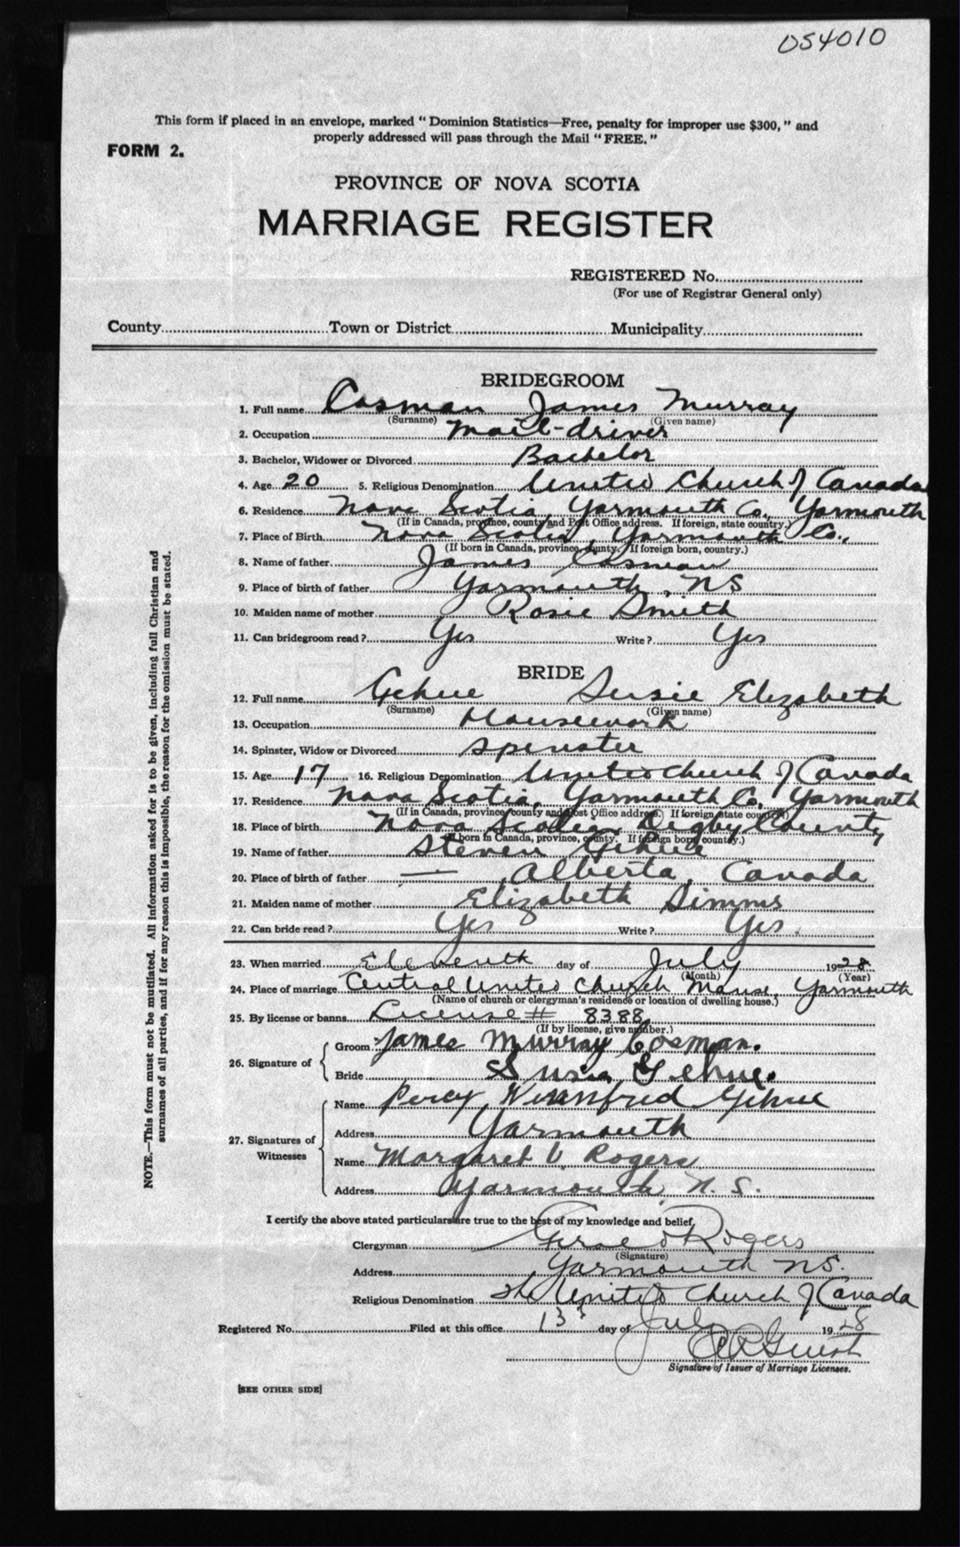 054010
This form if placed in an envelope, marked "Dominion Statistics—Free, penalty for improper use $300," and
properly addressed will pass through the Mail "FREE."
FORM 2.
PROVINCE OF NOVA SCOTIA
MARRIAGE REGISTER
REGISTERED No.
(For use of Registrar General only)
County Town or District Municipality
BRIDEGROOM
1. Full name Cosman James Murray
(Surname) (Given name)
2. Occupation Mail-driver
3. Bachelor, Widower or Divorced Bachelor
4. Age 20 5. Religious Denomination United Church of Canada
6. Residence Nova Scotia, Yarmouth Co., Yarmouth
(If in Canada, province, county and Post Office address. If foreign, state country.)
7. Place of Birth Nova Scotia, Yarmouth Co.,
(If born in Canada, province, county. If foreign born, country.)
8. Name of father James Cosman
9. Place of birth of father Yarmouth, NS
10. Maiden name of mother Rosie Smith
11. Can bridegroom read? Yes Write? Yes
BRIDE
12. Full name Gehue Susie Elizabeth
(Surname) (Given name)
13. Occupation Housework
14. Spinster, Widow or Divorced Spinster
15. Age 17 16. Religious Denomination United Church of Canada
17. Residence Nova Scotia, Yarmouth Co., Yarmouth
(If in Canada, province, county and Post Office address. If foreign, state country.)
18. Place of birth Nova Scotia, Digby County
(If born in Canada, province, county. If foreign born, country.)
19. Name of father Steven Gehue
20. Place of birth of father — Alberta, Canada
21. Maiden name of mother Elizabeth Simms
22. Can bride read? Yes Write? Yes.
23. When married Eleventh day of July 1928
(Month) (Year)
24. Place of marriage Central United Church Manse, Yarmouth
(Name of church or clergyman's residence or location of dwelling house.)
25. By license or banns License # 8388
(If by license, give number.)
26. Signature of
Groom James Murray Cosman.
Bride Susie Gehue.
27. Signatures of Witnesses
Name Percy Gehue
Address Yarmouth
Name Margaret V. Rogers
Address Yarmouth, N.S.
I certify the above stated particulars are true to the best of my knowledge and belief,
Clergyman Rogers
(Signature)
Address Yarmouth NS.
Religious Denomination The United Church of Canada
Registered No. Filed at this office 13 day of July 1928
Signature of Issuer of Marriage Licenses.
[SEE OTHER SIDE]
NOTE.—This form must not be mutilated. All information asked for is to be given, including full Christian and
surnames of all parties, and if for any reason this is impossible, the reason for the omission must be stated.